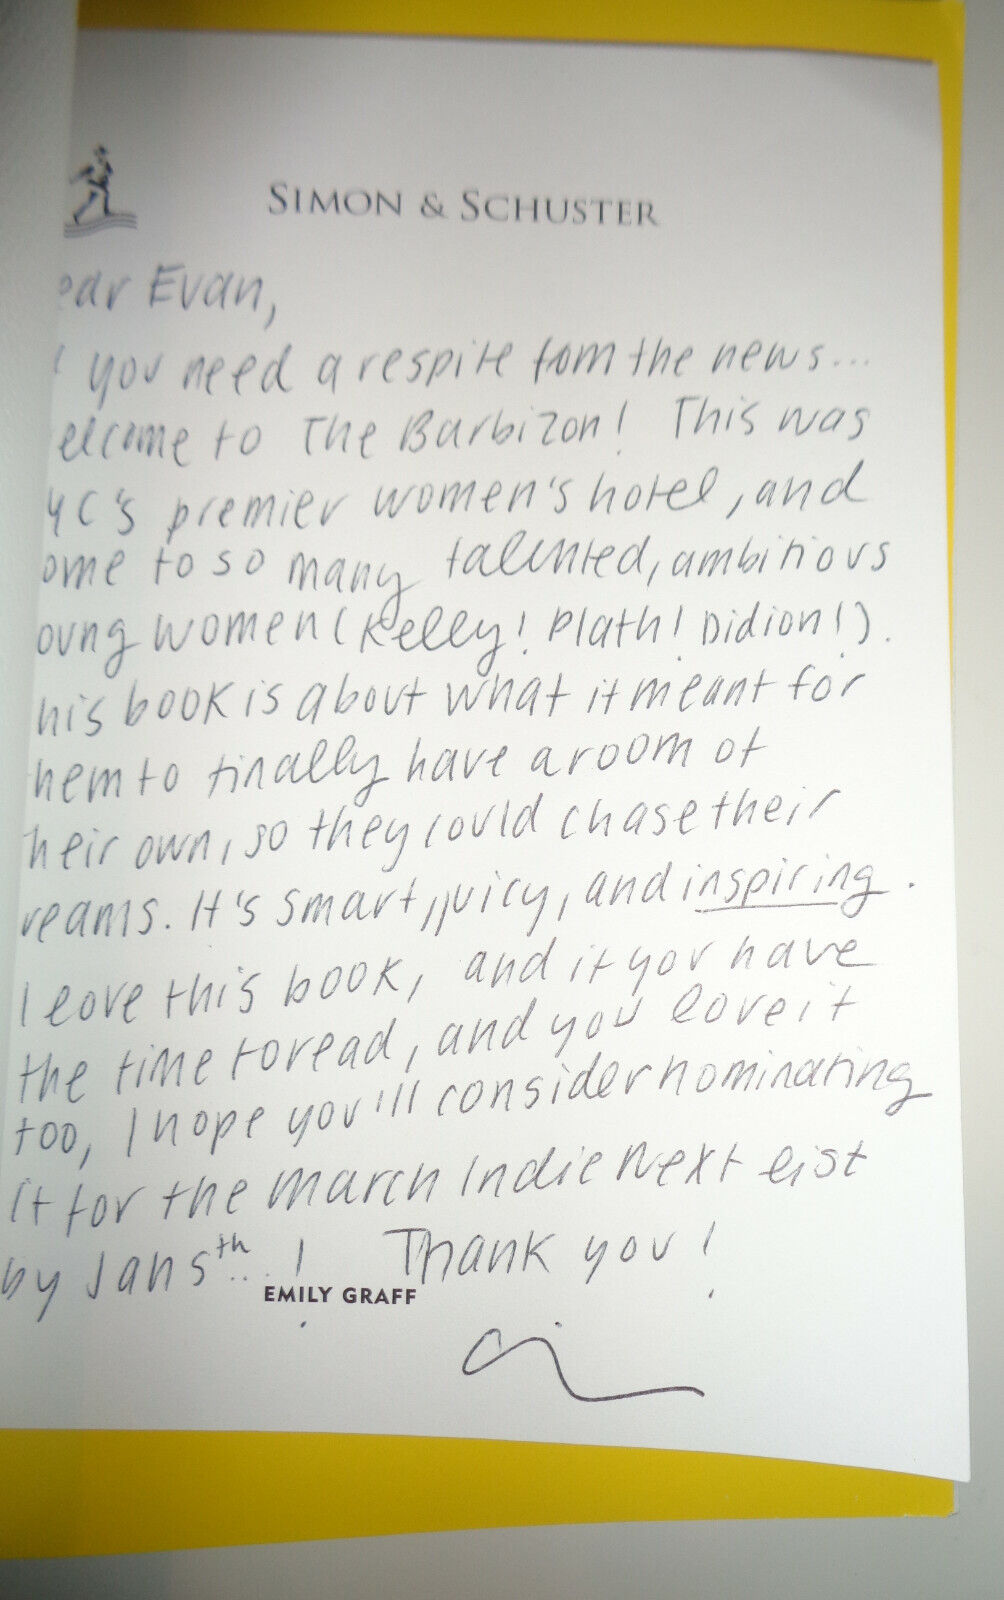 SIMON & SCHUSTER
ear Evan,
you need a respite from the news...
elcome to The Barbizon! This was
YC's premier women's hotel, and
ome to so many talented, ambitious
oung women (Kelly! Plath! Didion!).
his book is about what it meant for
hem to finally have a room of
heir own, so they could chase their
reams. It's smart, juicy, and inspiring.
I love this book, and if you have
the time to read, and you love it
too, I hope you'll consider nominating
it for the March Indie Next List
by Jan 5th...! Thank you!
EMILY GRAFF